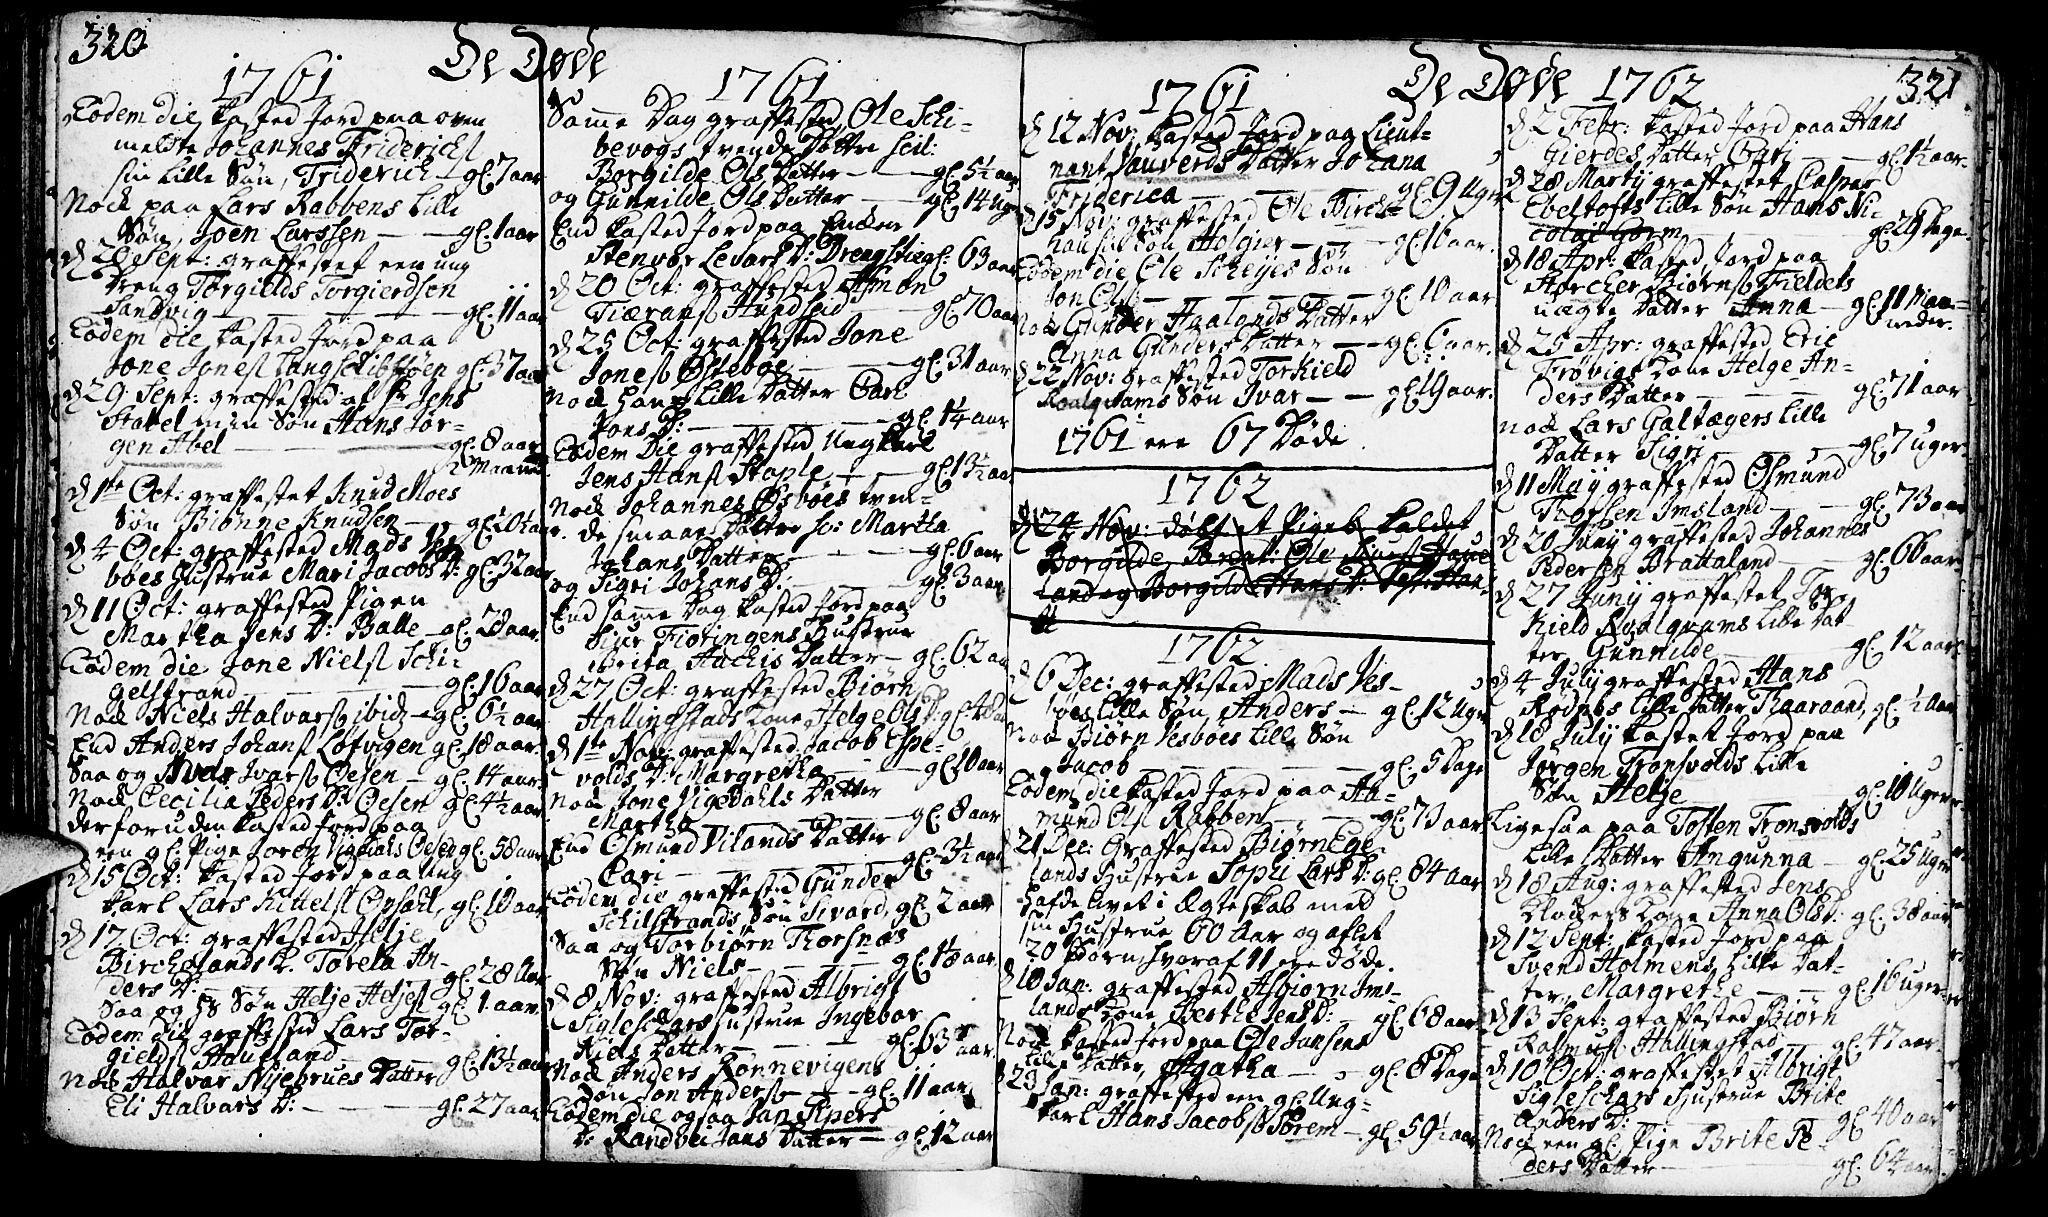 320
De Døde
1761
Eodem die kasted Jord paa oven
melte Johannes Friderichs
sin lille Søn, Friderich - gl: 7 aar
Nock paa Lars Rabbens lille
Søn, Joen Larssen - - gl: 1 aar
Sept: graffestet een ung
Dreng Torgilds Torgierdsen
Sandvig - - - gl: 11 aar
Eodem die kasted Jord paa
Jone Jones gl: 37 aar
d 29 Sept: graffested af Hr Jens
Stabel min Søn Hans Jør-
gen Abel - - gl: 8 aar
2 Maaned
d 1te Oct: graffestet Knud Moes
Søn Biønne Knudsen - gl: 10½ aar.
d 4 Oct: graffested Mads Ves-
böes Hustrue Mari Jacobs D: gl: 32 aar
d 11 Oct: graffested Pigen
Martha Jens D: Balle gl: 28 aar.
Eodem die Jone Niels Schi-
gelstrand - - gl: 16 aar
Nock Niels Halvars ibid - gl: 6½ aar
End Anders Johans Lofvigen gl: 18 aar.
Saa og Niels Ivars Oesen - gl: 14 aar.
Nock Cecilia Peders D: Oesen gl: 4½ aar
derforuden kasted Jord paa
een gl: Pige Joren Oesen gl: 58 aar
d 15 Oct: kasted Jord paa ung
karl Lars Opsal, gl: 10 aar
d 17 Oct: graffested Helje
Birchelands K. Torela An-
ders D: - - gl: 28 Aar
Saa og Søn Helje Heljes gl: 1. aar.
Eodem die graffested Lars Tor-
gields Haufland - - gl: 13½ aar
Nock Halvar Nyebrues Datter
Eli Halvars D: - - gl: 27 aar
1761
Samme Dag graffested Ole Schi-
bevogs tvende Døttre scil:
Borgilde Ols Datter - - gl: 5½ aar
og Gunnilde Ols Datter - gl: 14 Uger
End kasted Jord paa Enken
Stenvor Levars D: Drengstig gl: 63 aar
d 20 Oct: graffested Asmon
Tiærans Hundseid - gl: 70 aar
d 25 Oct: graffested Jone
Jones Østeboe - - gl: 31 aar
Nock hans lille Datter Cari
Jons D: - - gl: 1¼ aar
Eodem Die graffested Ungkarl
Jens Hans Staple - - gl: 13½ aar
Nock Johannes Øsböes tven-
de smaae Døttre sc: Martha
Johans Datter - - gl: 6 aar
og Sigri Johans D: - - gl: 3 aar
End samme Dag kasted Jord paa
Siur Fioringens Hustrue
Brita Aachis Datter - gl: 62 aar
d 27 Oct: graffested Biørn
Hallingstads Kone, Helge Ols D: gl: 48 aar
d 1te Nov: graffested Jacob Espe-
volds D: Margretha - - gl: 10 aar
Nock Jone Vigedahls Datter
Martha - - gl: 8 aar
End Osmund Vilands Datter
Cari - - gl: 3½ aar
Eodem die graffested Gunder
Schilstrands Søn Sivard, gl: 2 aar
Saa og Torbiørn Thorsnæs
Søn Niels - - gl: 1 aar
d 8 Nov: graffested Albrigt
Sigleschars Hustrue Ingebor
Niels Datter - - gl: 63 aar.
Nock Anders Rønnevigens
Søn Jon Anders - - gl: 11 aar
Eodem die ogsaa Jan Pipers
D: Randvei Jans Datter - gl: 12 aar
1761
d 12 Nov: kasted Jord paa Lieut-
nant Datter Johana
Friderica - - gl: 9 Uger
d 15 Nov: graffested Ole Birche-
haus Søn Holgier - - gl: 10 aar.
Eodem die Ole Scheijes Søn
Jon Ols - - gl: 10 aar
Nock Gunder Haalands Datter
Anna Gunders Datter - gl: 6 aar.
d 22 Nov: graffested Torkield
Kvalqvams Søn Ivar - - gl: 19 aar.
1761 ere 67 Døde
1762
d 24 Nov: døbt et Pigeb: kaldet
Borgilde, Parent: Ole
land og Borgilde Hans D:
1762
d 6 Dec: graffested Mads Ves-
boes lille Søn, Anders - gl: 12 Uger
Nock Biørn Vesboes lille Søn
Jacob - - gl: 5 Dage
Eodem die kasted Jord paa Aa-
mund Ols Rabben - - gl: 73 aar
d 21 Dec: Graffested Biørn Ege-
lands Hustrue Sophi Lars D: gl: 84 aar
hafde livet i Ægteskab med
sin Hustrue 60 aar og aflet
20 Børn hvoraf 11 ere døde.
d 10 Jan: graffested Asbiørn Ims-
lands Kone Berthe Jens D: - gl: 68 aar
Nock kasted Jord paa Ole Jansens
lille Datter, Agatha - - gl: 8 Dage
d 23 Jan: graffested een gl: Ung-
karl Hans Jacobs Sørem - gl: 59½ aar
De Døde
1762
321
d 2 Febr: kasted Jord paa Hans
Gierdes Datter Guri - - gl: 1½ aar.
d 28 Martij graffestet Casper
Ebeltofts lille Søn Hans Ni-
colai Gorm - - gl: 29 Dage.
d 18 Apr: kasted Jord paa
Storcher Biørns Fieldets
uægte Datter Anna - gl: 11 Maa-
neder.
d 25 Apr: graffested Eric
Frøvigs Kone Helge An-
ders Datter - - gl: 71 aar
Nock Lars Galtægers lille
Datter Sigri - - gl: 7 uger.
d 11 Maij graffested Osmund
Thorsen Imsland - - gl: 73 aar
d 20 Junij graffested Johannes
Pedersen Brattaland - gl: 66 aar.
d 27 Junij graffestet, Tor-
kield Kvalqvams lille Dat-
ter Gunnilde - - gl: 12 aar.
d 4 July graffested Hans
Rødnes lille Datter Thaaraans, gl: ½ Aar
d 18 July kastet Jord paa
Jørgen Tronsvolds lille
Søn Helje - - gl: 10 Uger
Ligesaa paa Tosten Tronsvolds
lille Datter Angunna - gl: 25 Uger
d 18 Aug: graffested Jens
Kloders Kone Anna Ols D: gl: 38 aar
d 12 Sept: kasted Jord paa
Svend Holmens lille Dat-
ter, Margrethe - - gl: 16 uger
d 13 Sept: graffested Biørn
Rasmus Hallingstad - gl: 47 aar.
d 10 Oct: graffestet Albrigt
Sigleschars Hustrue Brite
Anders D: - - gl: 40 aar
Nock een gl: Pige Brite Pe-
ders Datter - - gl: 64 aar